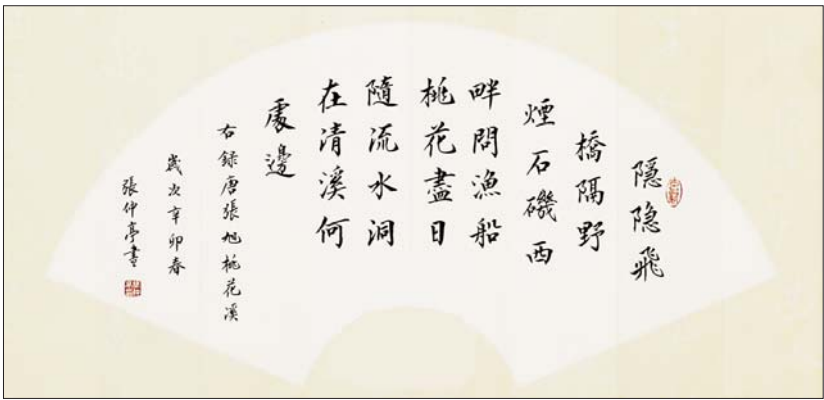 隱隐飛
橋隔野
煙石磯西
畔問漁船
桃花盡日
隨流水洞
在清溪何
處邊
右録唐張旭桃花溪
歲次辛卯春
張仲亭書